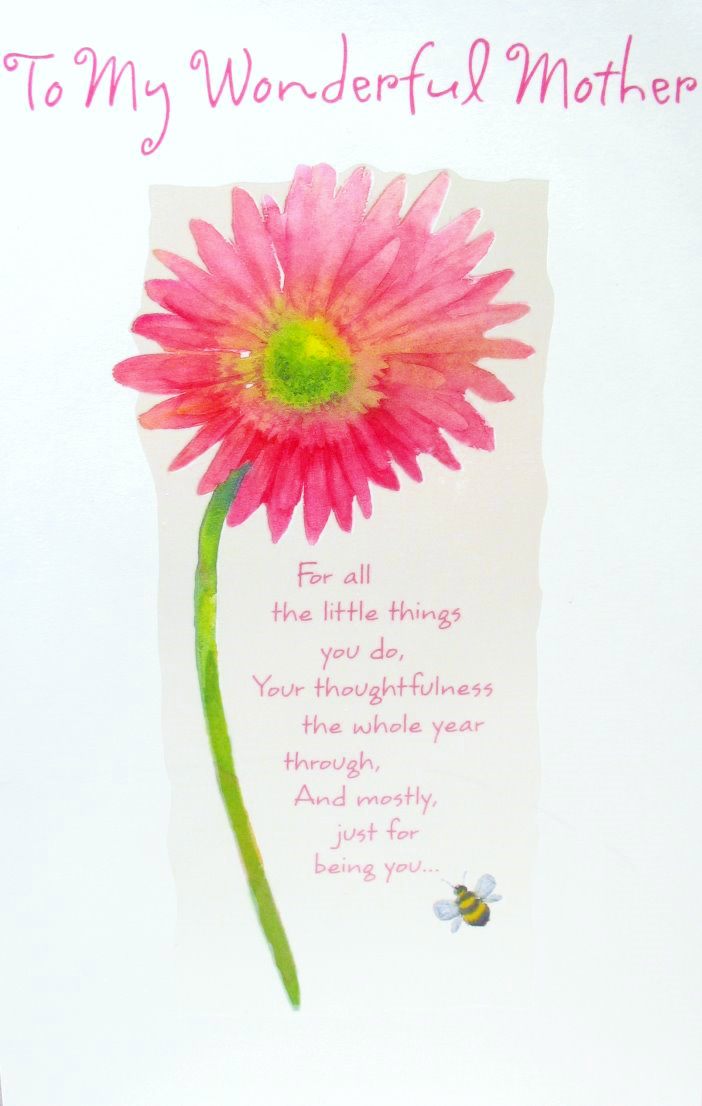 To My Wonderful Mother
For all
the little things
you do,
Your thoughtfulness
the whole year
through,
And mostly,
just for
being you...